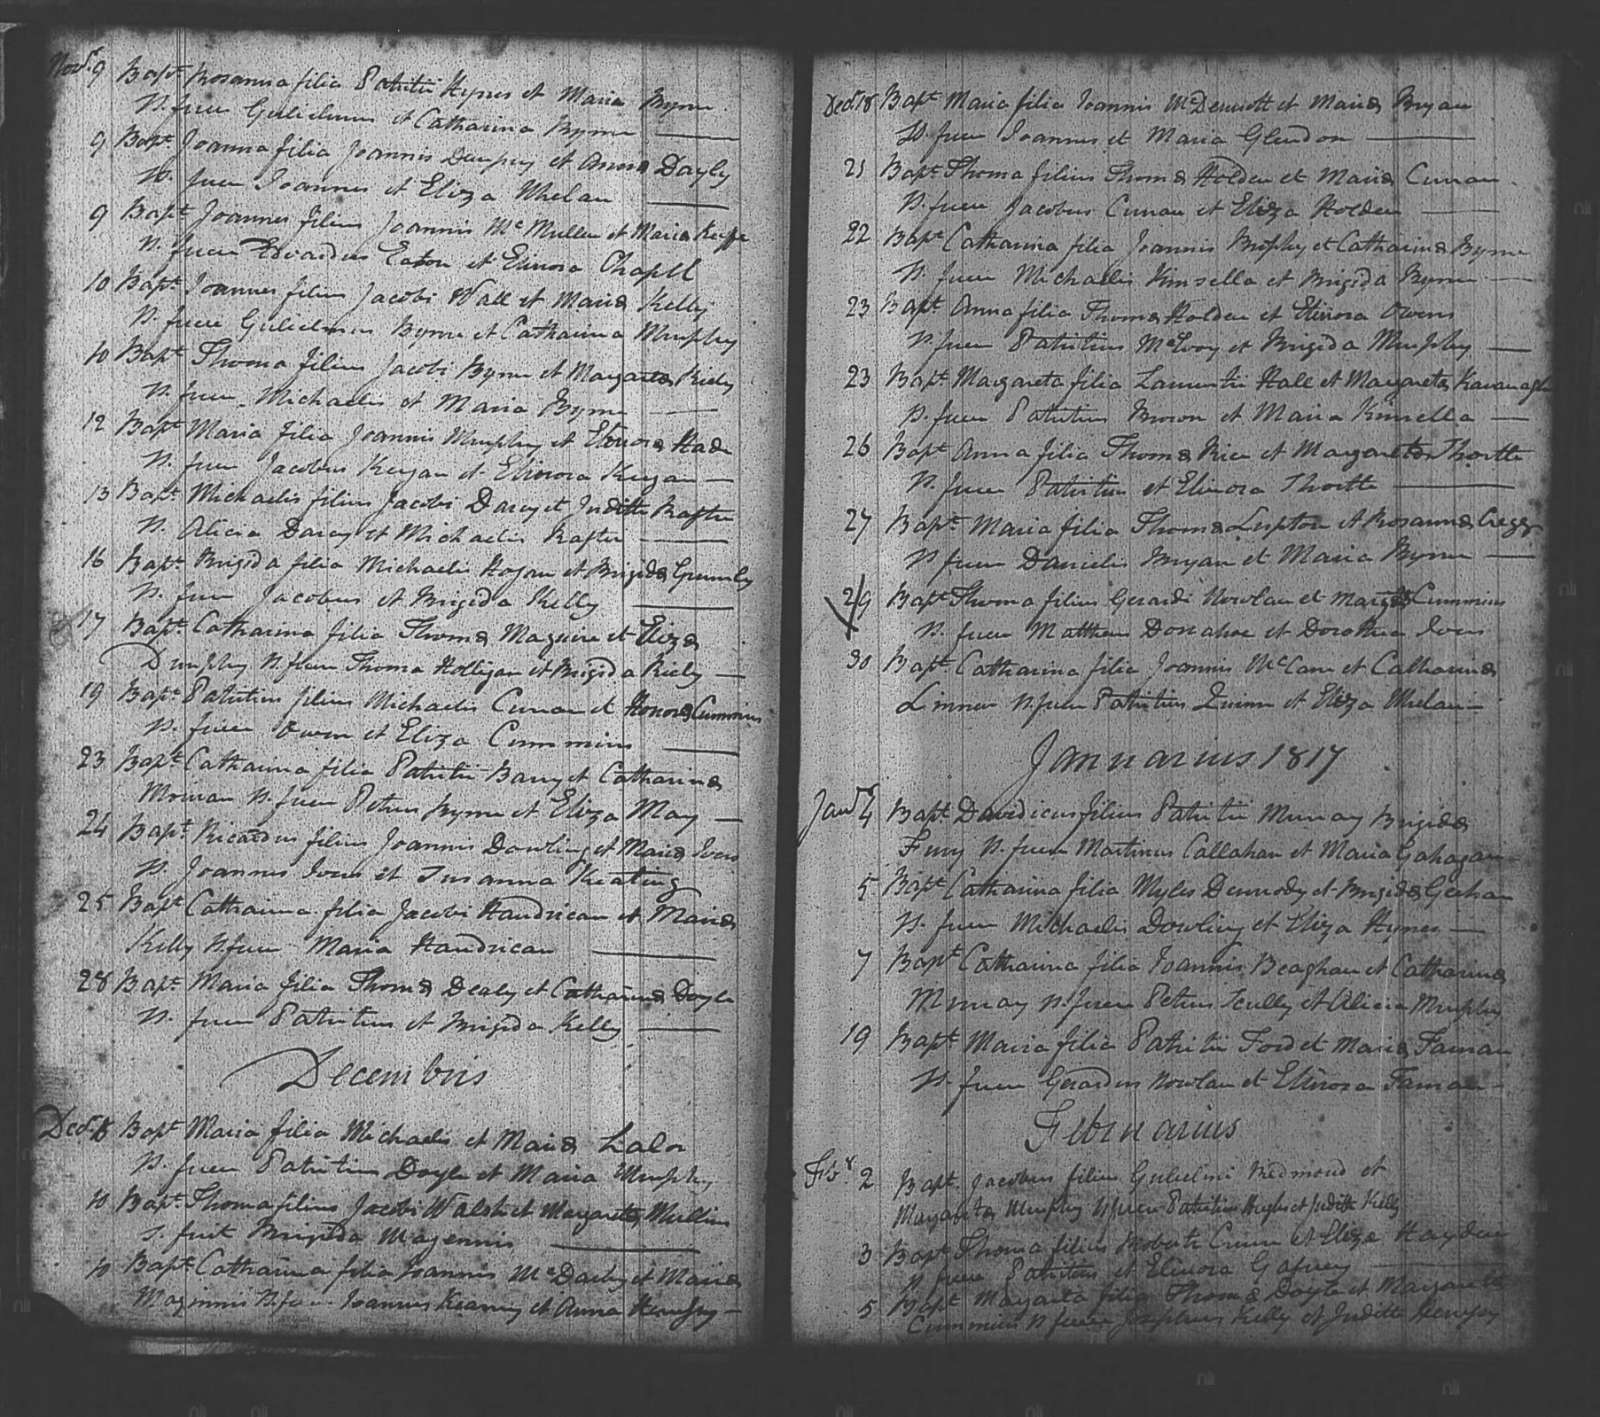 Novr. 9 Bapt Rosanna filia Patritii Hynes et Maria Byrne
Sp. fuere Gulielmus et Catharina Byrne
9 Bapt Joanna filia Joannis Dunphy et Anna Dayly
Sp. fuere Joannes et Eliza Whelan
9 Bapt Joannes filius Joannis McMullen et Maria
Sp. fuere Edvardus Eaton et Elinora Chapell
10 Bapt Joannes filius Jacobi Wall et Maria Kelly
Sp. fuere Gulielmus Byrne et Catharina Murphy
10 Bapt Thoma filius Jacobi Byrne et Margareta Riely
Sp. fuere Michaelis et Maria Byrne
12 Bapt Maria filia Joannis Murphy et Elenora Hade
Sp. fuere Jacobus Keegan et Elinora Keegan
13 Bapt Michaelis filius Jacobi Darcy et Judith Rafter
Sp. Alicia Darcy et Michaelis Rafter
16 Bapt Brigida filia Michaelis Hogan et Brigida
Sp. fuere Jacobus et Brigida Kelly
17 Bapt Catharina filia Thoma Maguire et Eliza
Dunphy Sp. fuere Thoma Holligan et Brigida Riely
19 Bapt Patritius filius Michaelis Curran et Honora Cummins
Sp. fuere Owen et Eliza Cummins
23 Bapt Catharina filia Patritii Barry et Catharina
Moran Sp. fuere Petrus Byrne et Eliza May
24 Bapt Ricardus filius Joannis Dowling et Maria Ivers
Sp. Joannes Ivers et Susanna Keating
25 Bapt Catharina filia Jacobi Handrican et Maria
Kelly Sp. fuere Maria Handrican
28 Bapt Maria filia Thoma Dealy et Catharina Doyle
Sp. fuere Patritius et Brigida Kelly
Decembris
Decr. 8 Bapt Maria filia Michaelis et Maria Lalor
Sp. fuere Patritius Doyle et Maria Murphy
10 Bapt Thoma filius Jacobi Walsh et Margareta Mullins
S. fuit Brigida Magennis
10 Bapt Catharina filia Joannis McDarby et Maria
Maginnis Sp. fuere Joannes Kearney et Anna
Decr 18 Bapt Maria filia Joannis McDermott et Maria Bryan
Sp. fuere Joannes et Maria Glendon
21 Bapt Thoma filius Thoma Holden et Maria Curran
Sp. fuere Jacobus Curran et Eliza Holden
22 Bapt Catharina filia Joannis Brophy et Catharina Byrne
Sp. fuere Michaelis Kinsella et Brigida Byrne
23 Bapt Anna filia Thoma Holden et Elinora Owens
Sp. fuere Patritius McEvoy et Brigida Murphy
23 Bapt Margareta filia Laurentii Hall et Margareta Kavanagh
Sp. fuere Patritius Brown et Maria Kinsella
26 Bapt Anna filia Thoma Rice et Margareta Thortle
Sp. fuere Patritius et Elinora Thortle
27 Bapt Maria filia Thoma Lupton et Rosanna Cregg
Sp. fuere Danielis Bryan et Maria Byrne
29 Bapt Thoma filius Gerardi Nowlan et Margt Cummins
Sp. fuere Mattheus Donahoe et Dorothea Ivers
30 Bapt Catharina filia Joannis McCann et Catharina
Linnen Sp. fuere Patritius Quinn et Eliza Whelan
Januarius 1817
Janr. 4 Bapt Davidicus filius Patritii Murray Brigida
Fury Sp. fuere Martinus Callahan et Maria Gahagan
5 Bapt Catharina filia Myles Dermody et Brigida Geehan
Sp. fuere Michaelis Dowling et Eliza Hynes
7 Bapt Catharina filia Joannis Beaghan et Catharina
Murray Sp. fuere Petrus Scully et Alicia Murphy
19 Bapt Maria filia Patritii Ford et Maria Farnan
Sp. fuere Gerardus Nowlan et Elinora Farnan
Februarius
Febr. 2 Bapt Jacobus filius Gulielmi Redmond et
Margareta Murphy Sp. fuere Patritius Hughes et Judith Kelly
3 Bapt Thoma filius Roberti Curren et Eliza Hayden
Sp. fuere Patritius et Elinora Gafney
5 Bapt Margareta filia Thoma Doyle et Margareta
Cummins Sp. fuere Josephus Kelly et Judith